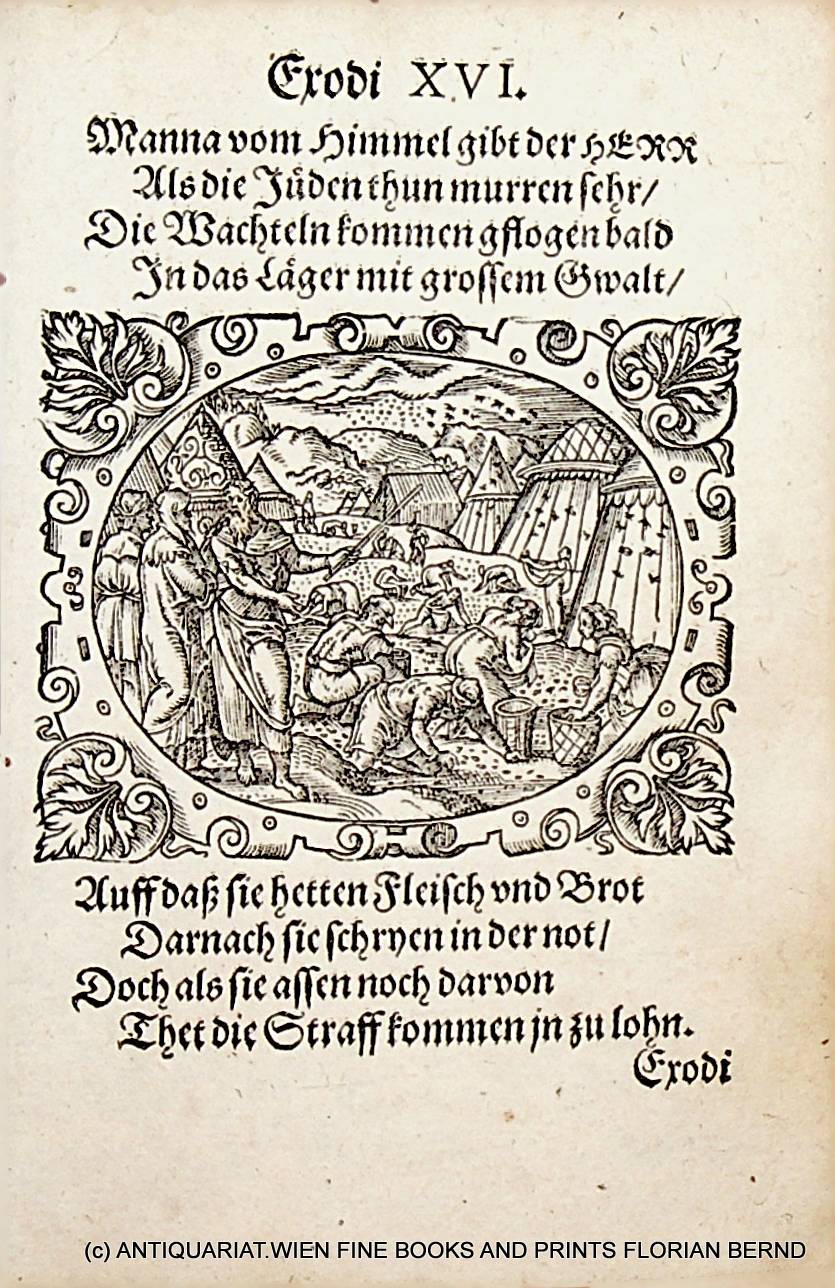 Exodi XVI.
Manna vom Himmel gibt der HERR
Als die Jüden thun murren sehr/
Die Wachteln kommen gflogen bald
In das Läger mit grossem Gwalt/
Auff daß sie hetten Fleisch vnd Brot
Darnach sie schryen in der not/
Doch als sie assen noch darvon
Thet die Straff kommen jn zu lohn.
Exodi
(c) ANTIQUARIAT.WIEN FINE BOOKS AND PRINTS FLORIAN BERND